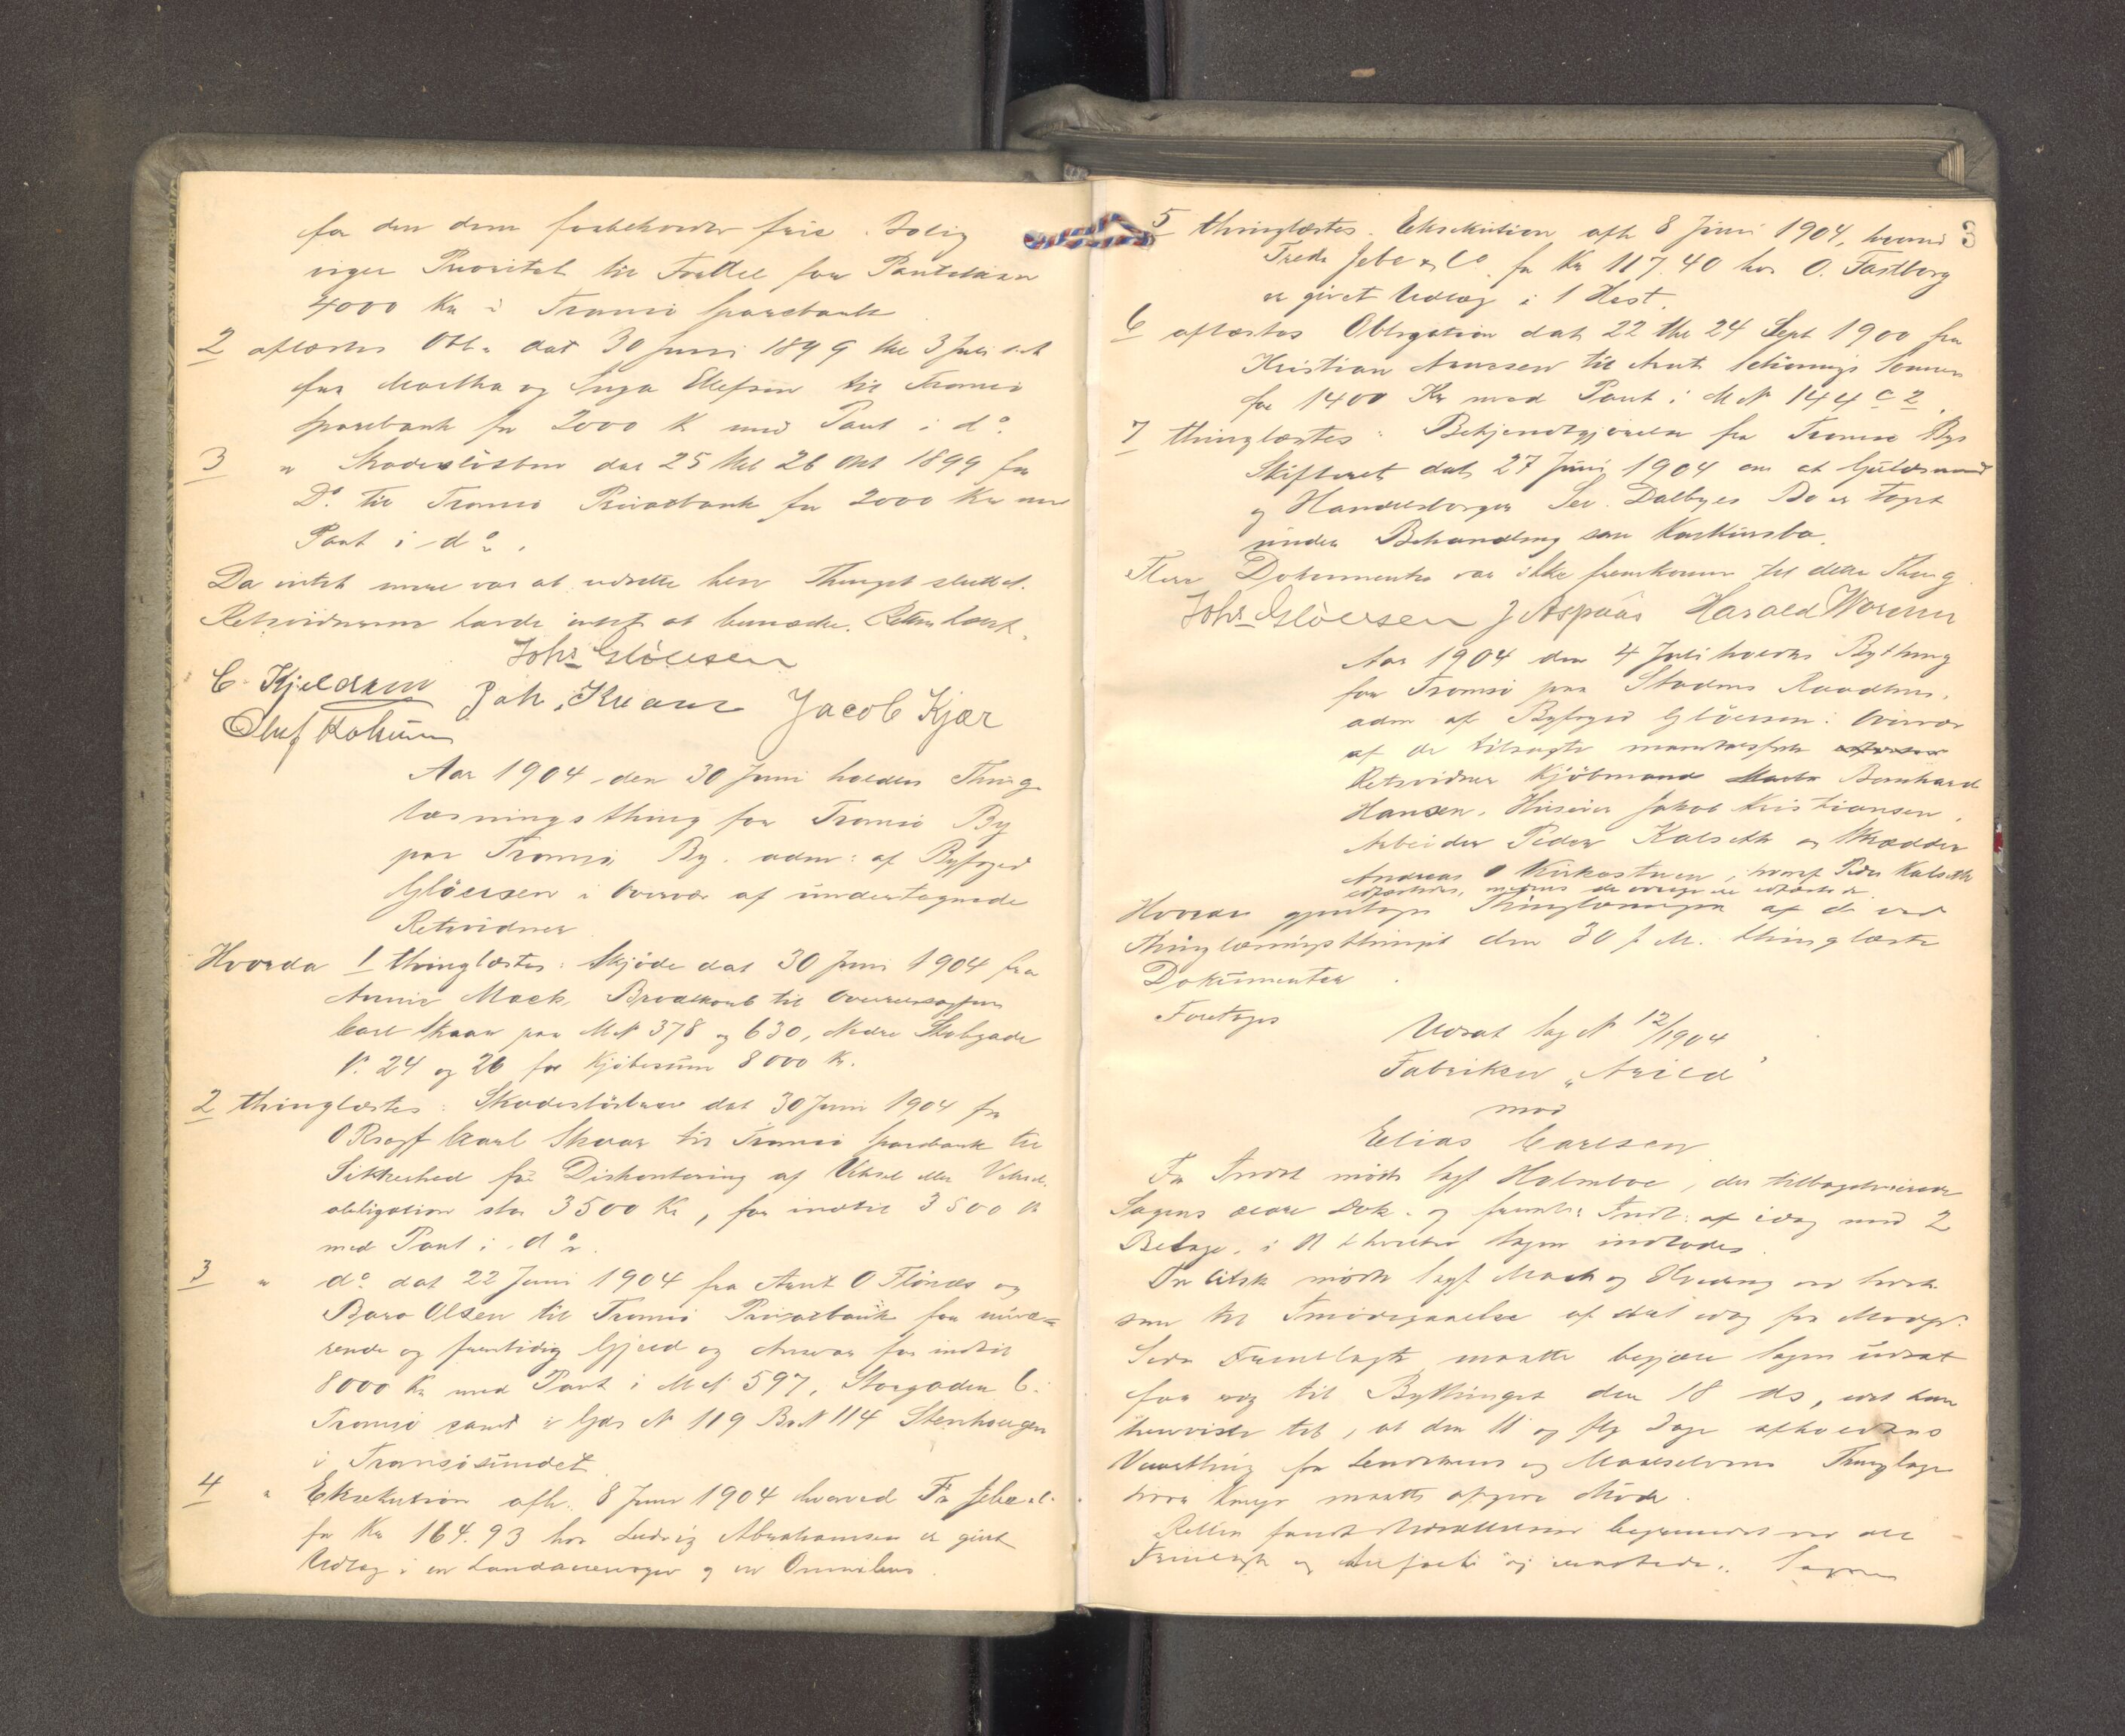 for den dem forbeholdte frie Bolig
viger Prioritet til Fordel for Pantelaan
4000 Kr i Tromsø Sparebank
2 aflæstes Obl. dat 30 Juni 1899 thl 3 Juli
fra Martha og Inga Ellefsen til Tromsø
Sparebank for 2000 K med Pant i do.
3 " Skadesløsbrev dat 25 thl 26 Okt 1899 fra
Do. til Tromsø Privatbank for 2000 Kr med
Pant i do.
Da intet mere var at udrette blev Thinget sluttet.
Retsvidnerne havde intet at bemærke.
Johs Gløersen
C. Kjeldsen Joh. Kræmer Jacob Kjær
Oluf
Aar 1904 den 30 Juni holdtes Thing
læsningsthing for Tromsø By
paa Tromsø By. adm: af Byfoged
Gløersen i Overvær af undertegnede
Retsvidner
Hvorda 1 thinglæstes: Skjøde dat 30 Juni 1904 fra
Annie Mack, til Overretssagfører
Carl Skaar paa M N 378 og 630, Nedre Skolegade
N. 24 og 26 for Kjøbesum 8000 Kr.
2 thinglæstes: Skadesløsbrev dat 30 Juni 1904 fra
O Rsagf Carl Skaar til Tromsø Sparebank til
Sikkerhed for Diskontering af Veksel eller Veksel.
obligation stor 3500 Kr, for indtil 3500 Kr
med Pant i do.
3 " do dat 22 Juni 1904 fra Arnt O Flønæs og
Bara Olsen til Tromsø Privatbank for nuvæ=
rende og fremtidig Gjæld og Ansvar for indtil
8000 Kr med Pant i M N 597, Storgaden 6.
Tromsø samt i Gds N 119 Br N 114 Stenhaugen
i Tromsøsundet
4 " Eksekution afh. 8 Juni 1904 hvorved Fr Jebe
for Kr 164.93 hos Ludvig Abrahamsen er givet
Udlæg i en og en Omnibus.
3
5 thinglæstes. Eksekution afh 8 Juni 1904, hvorved
Fredr Jebe & Co. for Kr 117.40 hos O. Fastborg
er givet Udlæg i 1 Hest.
6 aflæstes Obligation dat 22 thl 24 Sept 1900 fra
Kristian Arnssen til Arnt Schiønings
for 1400 Kr med Pant i M N 144 c 2.
7 thinglæstes: Bekjendtgjørelse fra Tromsø Bys
Skifteret dat 27 Juni 1904 om at Guldsmed
og Handelsborger Dalbyes Bo er taget
under Behandling som Konkursbo.
Flere Dokumenter var ikke fremkomne til dette Thing.
Johs Gløersen J Aspaas Harald
Aar 1904 den 4 Juli holdtes Bything
for Tromsø paa Stadens Raadhus,
adm af Byfoged Gløersen i Overvær
af de tilsagte
Retsvidner Kjøbmand Bernhard
Hansen, Huseier Jakob Kristiansen,
Arbeider Peder Kalseth og Skrædder
Andreas O Kirkestuen, hvoraf Peder Kalseth
edfæstedes, medens de øvrige er edfæstede
Hvorda gjentoges Thinglæsningen af de ved
Thinglæsningsthinget den 30 f. M. thinglæste
Dokumenter.
Foretoges
Udsat Sag N 12/1904
Fabriken "Arild"
mod
Elias Carlsen
For Indst mødte Sagf Holmboe, der tilbageleverede
Sagens ældre Dok. og fremla Indl. af idag med 2
Bilage, i H t hvortil Sagen indlodes.
For Citsk mødte Sagf Mack og
som til Imødegaaelse af det idag fra Modp.
Side Fremlagte maatte begjære Sagen udsat
for sig til Bythinget den 18 ds, idet han
henviste til, at den 11 og flg Dage afholdtes
Vaarthing for Lenvikens og Maalselvens Thinglage
hvor Komp maatte afgive Møde.
Retten fandt Udsættelsen begrundet ved det
Fremlagte og Anførte og udsattes. Sagen